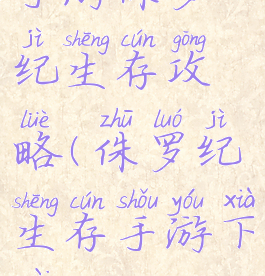 jì shēng cún gōng
纪生存攻
lüè zhū luó jì
略(侏罗纪
shēng cún shǒu yóu xià
生存手游下